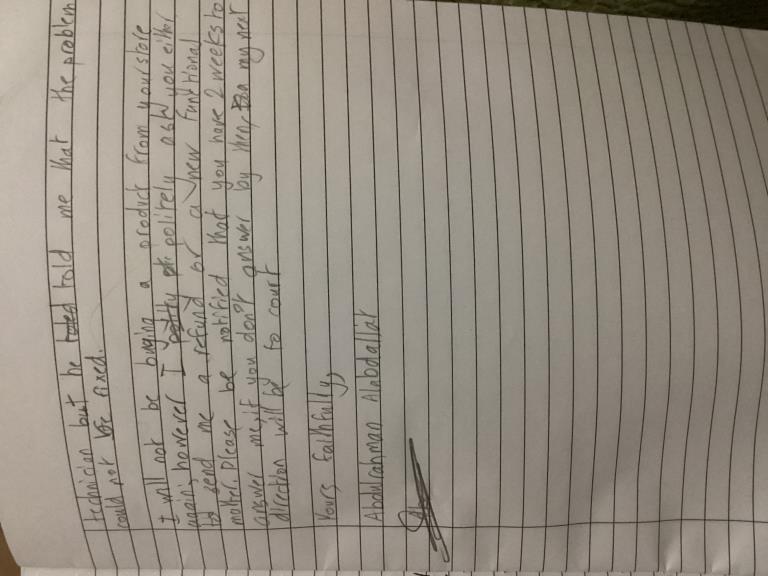 technician but he told me that the problem
could not be fixed.
I will not be buying a product from your store
again, however I politely ask you either
to send me a refund or a new functional
mother. Please be notified that you have 2 weeks to
answer me, if you don't answer by then, my next
direction will be to court
Yours faithfully,
Abdulrahman Alabdallat